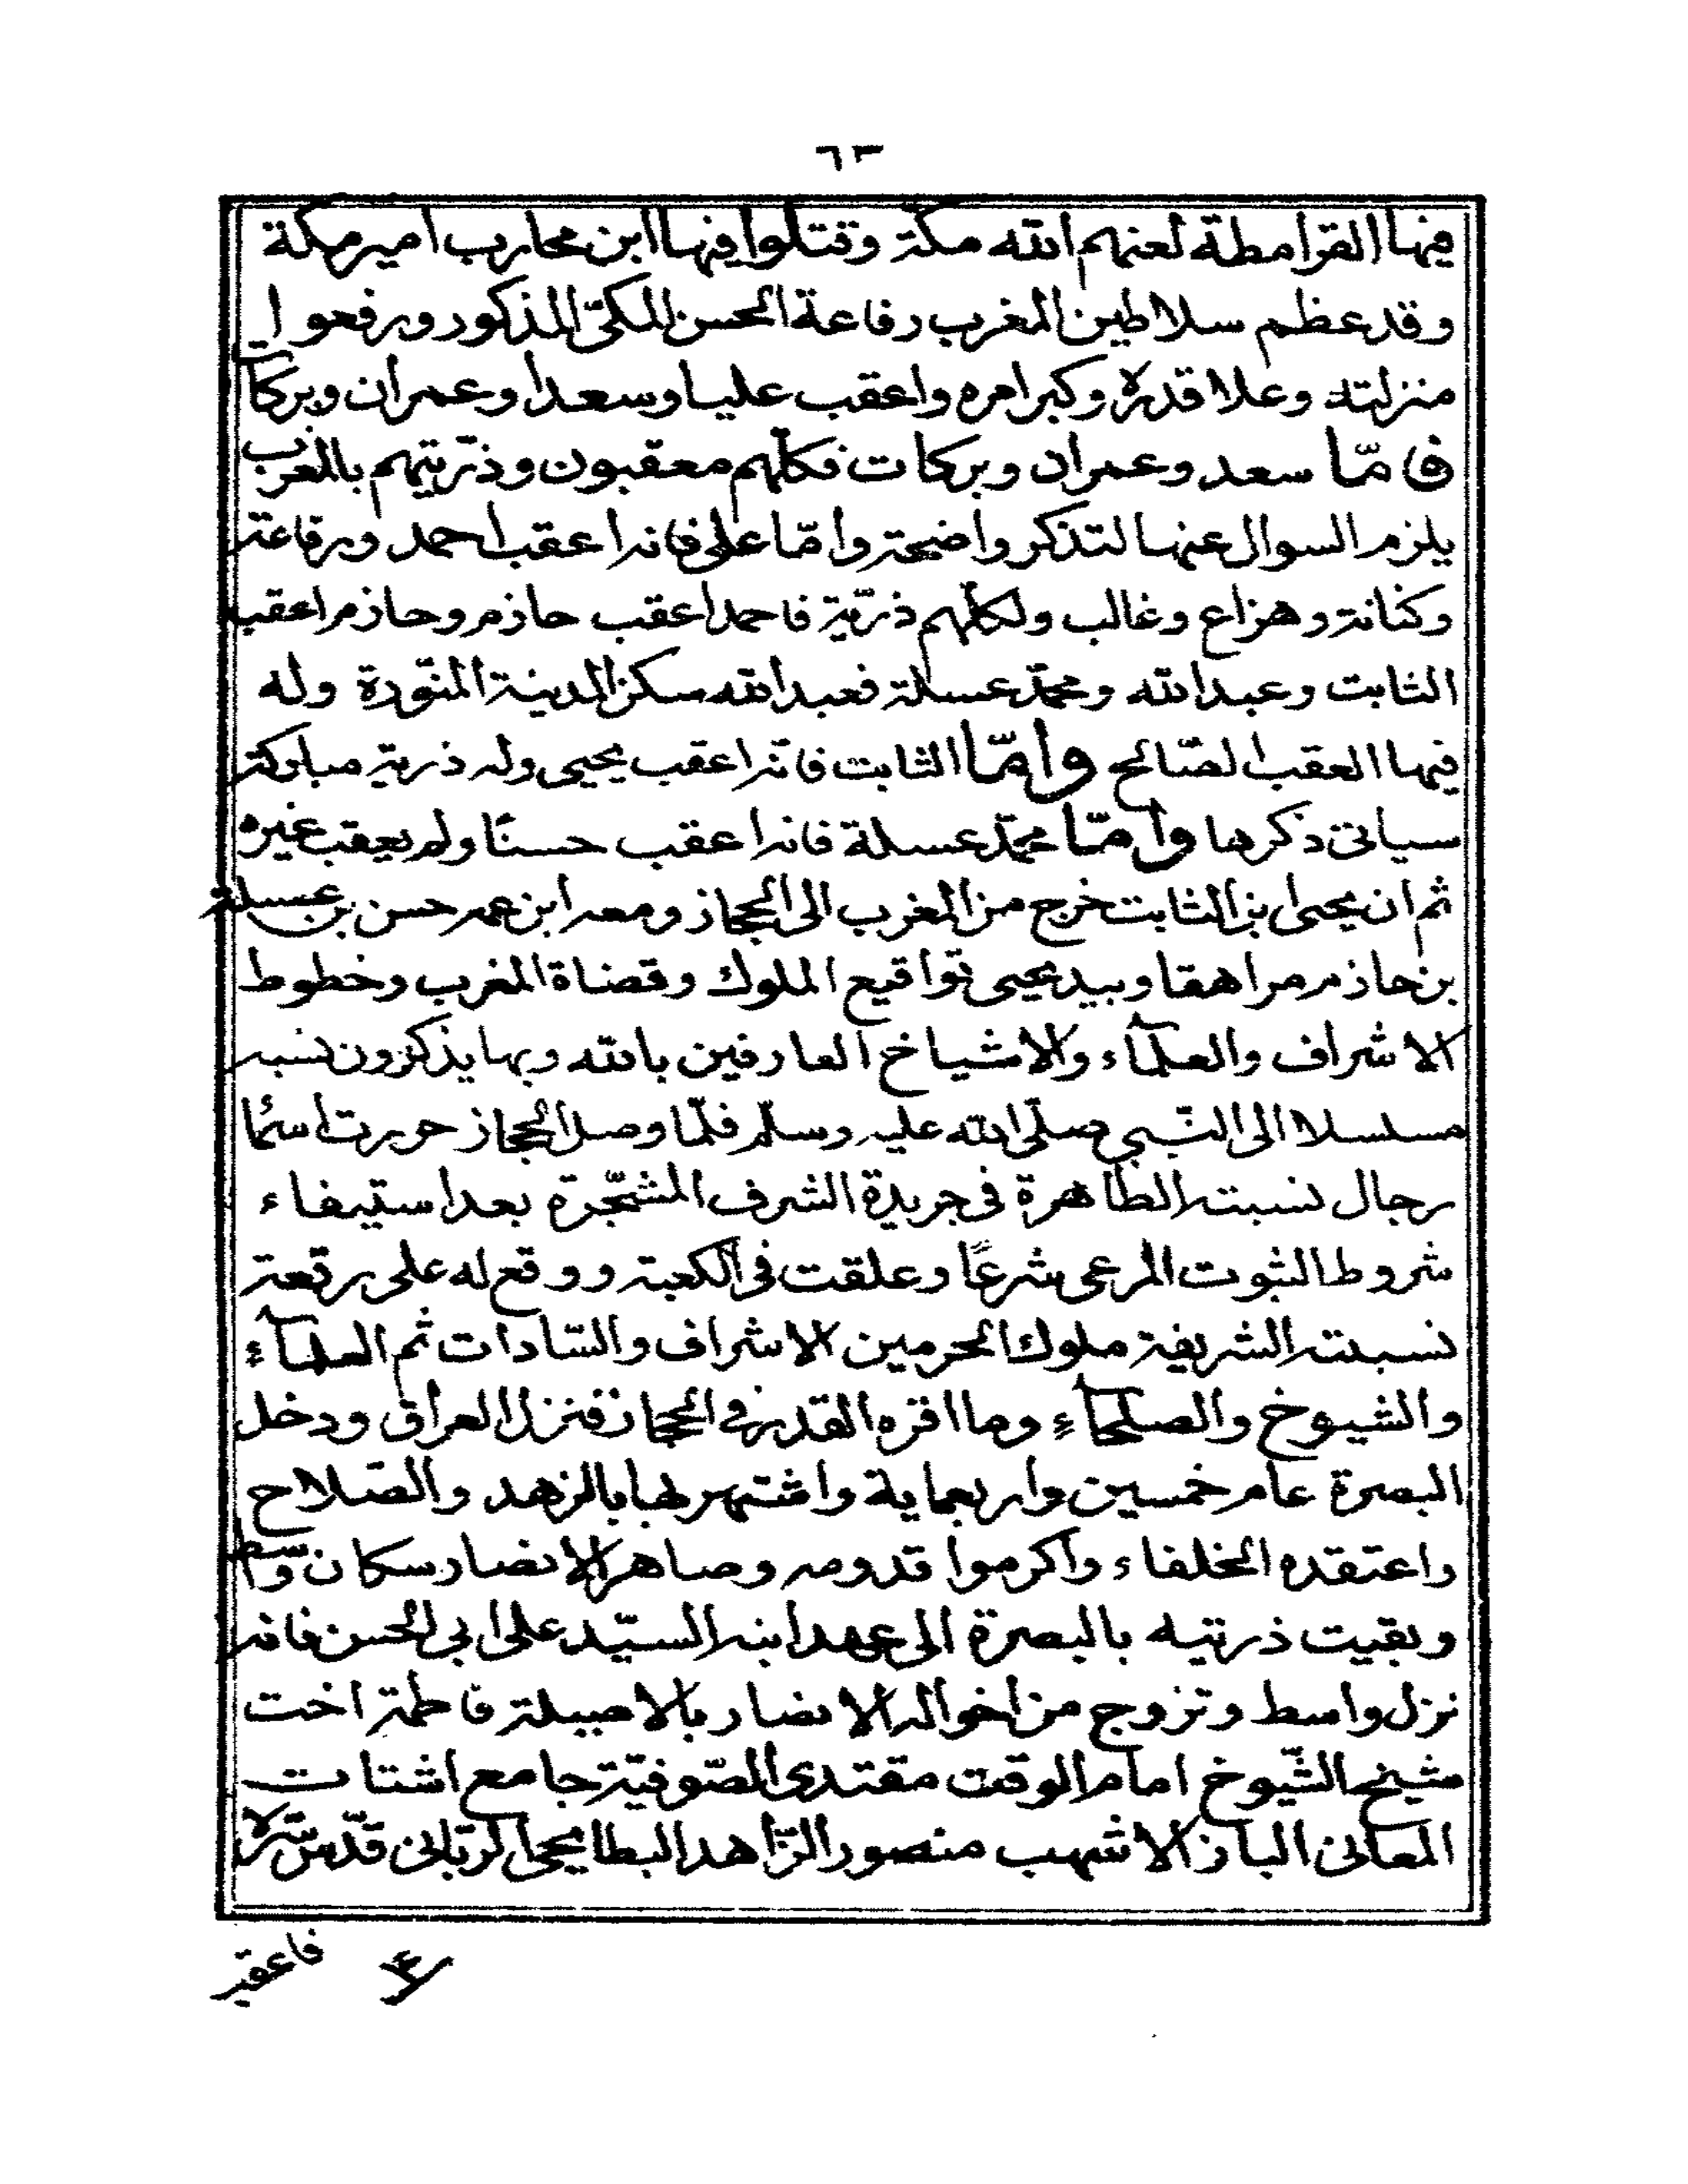 ٦٣
فيها القرامطة لعنهم الله مكة وقتلوا فيها ابن محارب امير مكة
وقد عظم سلاطين المغرب رفاعة الحسن المكى المذكور ورفعوا
منزلته وعلا قدره وكبر امره واعقب عليا وسعدا وعمران وبركات
فامّا سعد وعمران وبركات فكلهم معقبون وذريتهم بالمغرب
يلزم السوال عنها لتذكر واضحة وامّا على فانه اعقب احمد ورفاعة
وكنانة وهزاع وغالب ولكلهم ذرّية فاحمد اعقب حازم وحازم اعقب
الثابت وعبد الله ومحمّد عسلة فعبد الله سكن المدينة المنوّرة وله
فيها العقب الصّالح وامّا الثابت فانّه اعقب يحيى وله ذرية مباركة
سياتى ذكرها وامّا محمّد عسلة فانه اعقب حسنًا ولم يعقب غيره
ثم ان يحيى ابن الثابت خرج من المغرب الى الحجاز ومعه ابن عمه حسن بن عسلة
بن حازم مراهقا وبيد يحيى تواقيع الملوك وقضاة المغرب وخطوط
الاشراف والعلمآء والاشياخ العارفين بالله وبها يذكرون نسبه
مسلسلا الى النّبي صلّى الله عليه وسلّم فلمّا وصل الحجاز حررت اسمآ
رجال نسبته الطاهرة فى جريدة الشرف المشجّرة بعد استيفاء
شروط الثبوت المرعى شرعًا وعلقت فى الكعبة ووقع له على رقعة
نسبته الشريفة ملوك الحرمين الاشراف والسّادات ثم العلمآء
والشيوخ والصلحآء وما اقره القدر فى الحجاز فنزل العراق ودخل
البصرة عام خمسين واربعماية واشتهر بها بالزهد والصّلاح
واعتقده الخلفاء واكرموا قدومه وصاهر الانصار سكان واسط
وبقيت ذريته بالبصرة الى عهد ابنه السيّد على ابى الحسن فانه
نزل واسط وتزوج من اخواله الانصار بالاصيلة فاطمة اخت
شيخ الشّيوخ امام الوقت مقتدى الصّوفيّة جامع اشتات
المعانى الباز الاشهب منصور الزّاهد البطايحى الرّبانى قدّس سرّه
فاعقبه